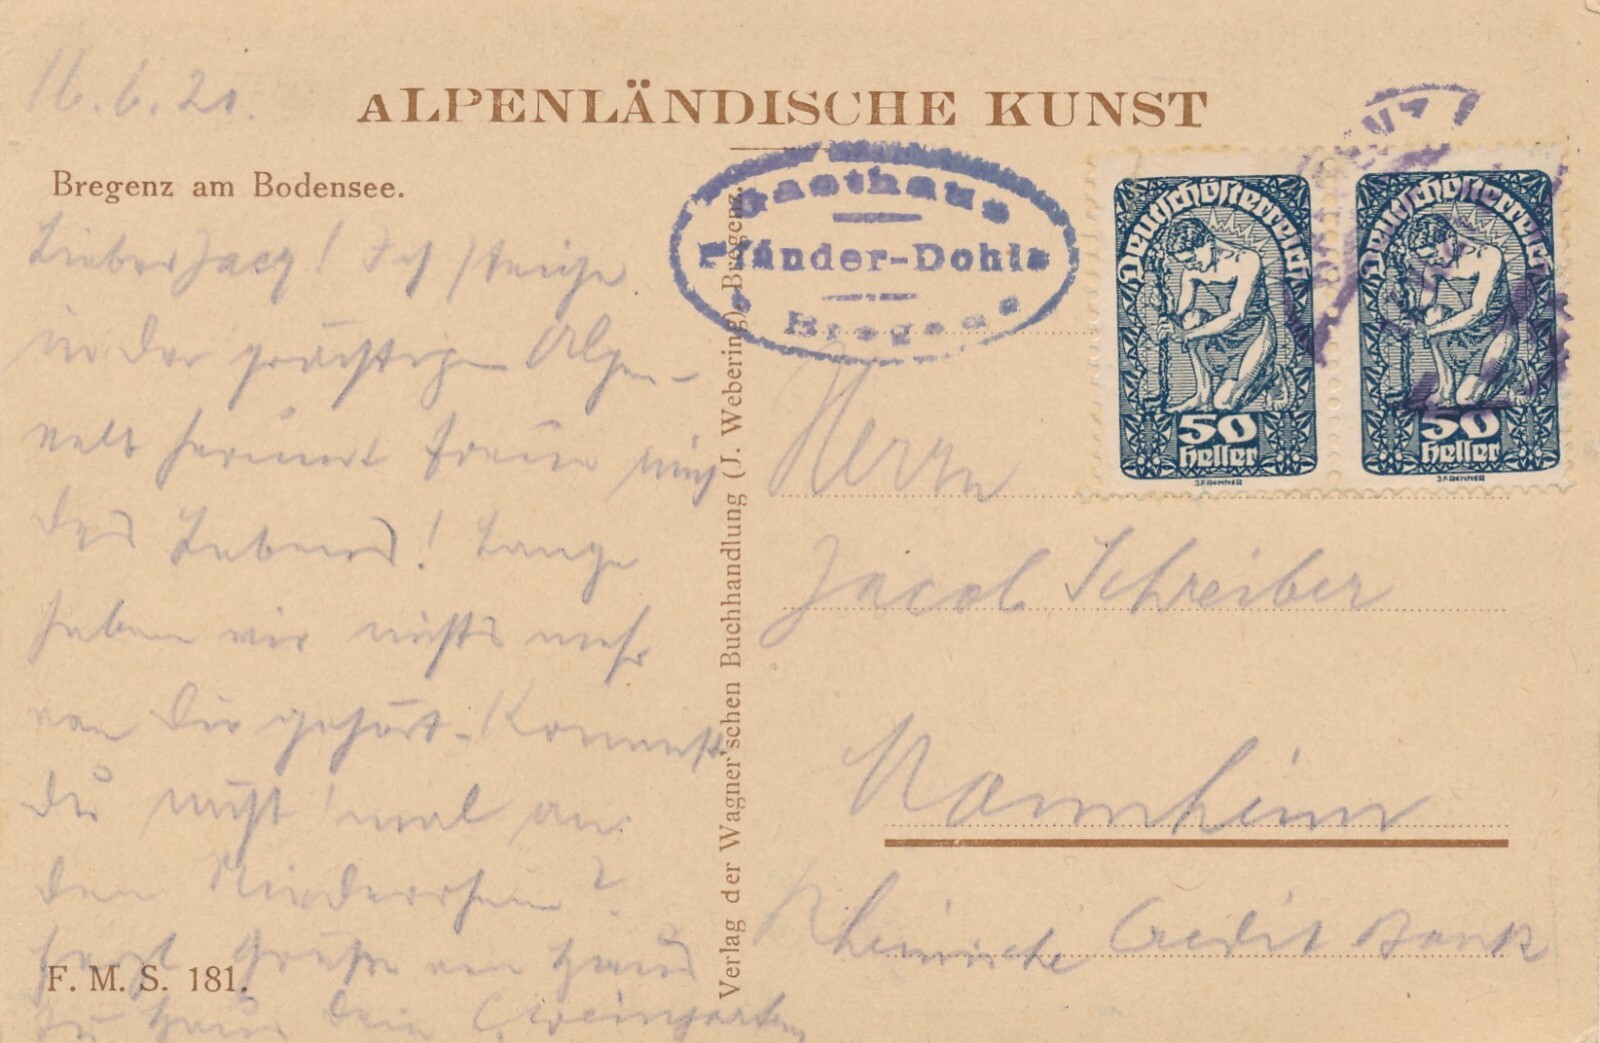 16.6.20.
ALPENLÄNDISCHE KUNST
Bregenz am Bodensee.
Lieber Jacq! Ich steige
in der prächtigen Alpen-
welt herum & freue mich
des Lebens! Lange
haben wir nichts mehr
von Dir gehört. Kommst
Du nicht 'mal an
den Niederrhein?
Herzl. Grüße von Haus
zu Haus Dein C. Weingarten
F. M. S. 181.
Verlag der Wagner'schen Buchhandlung (J. Webering), Bregenz.
Gasthaus
Pfänder-Dohle
Bregenz
Deutschösterreich
50
Heller
J.F.RENNER
Deutschösterreich
50
Heller
J.F.RENNER
Herrn
Jacob Schreiber
Mannheim
Rheinische Credit Bank